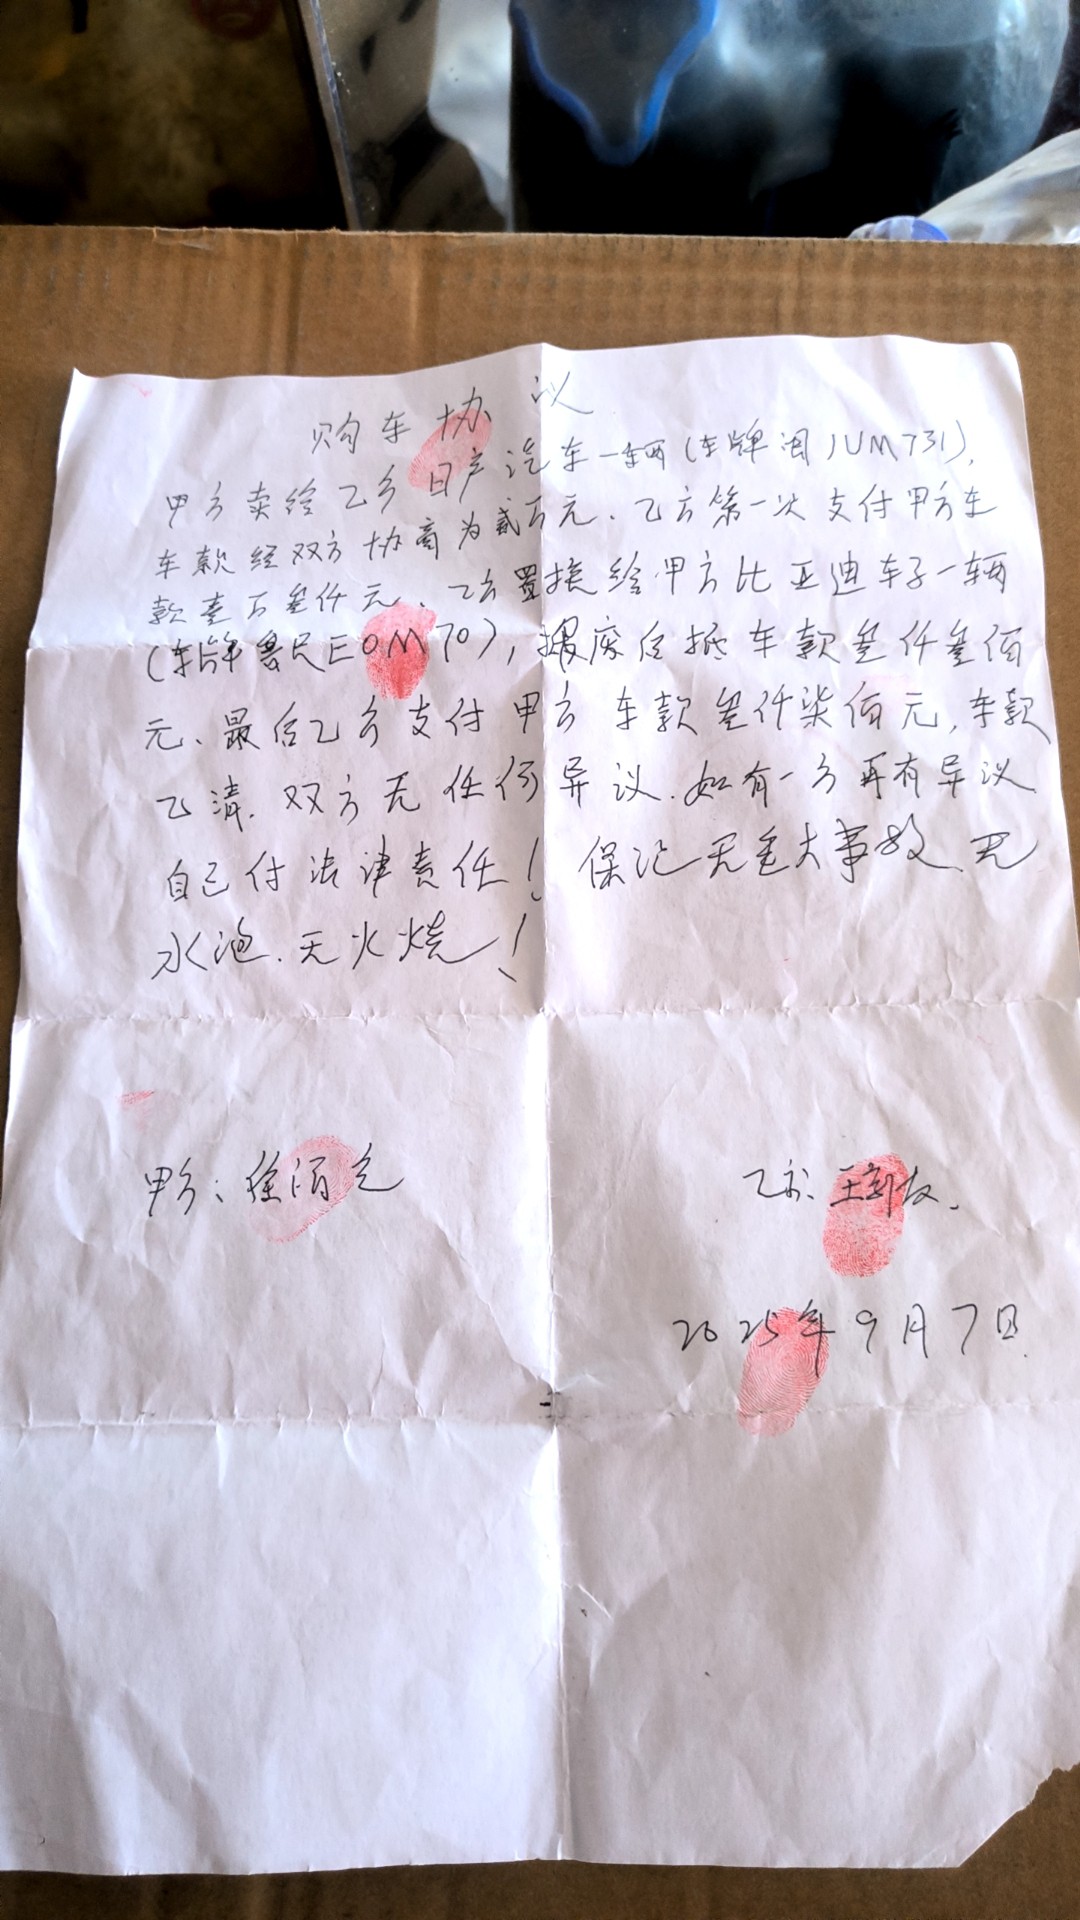 购车协议
甲方卖给乙方日产汽车一辆(车牌闽JUM731),
车款经双方协商为贰万元、乙方第一次支付甲方车
款壹万叁仟元、乙方置换给甲方比亚迪车子一辆
(车牌鲁REOM70),报废后抵车款叁仟叁佰
元、最后乙方支付甲方车款叁仟柒佰元,车款
乙清.双方无任何异议.如有一方再有异议
自己付法律责任!保证无重大事故.无
水泡.无火烧!
甲方:徐
乙方:王新友.
2025年9月7日.